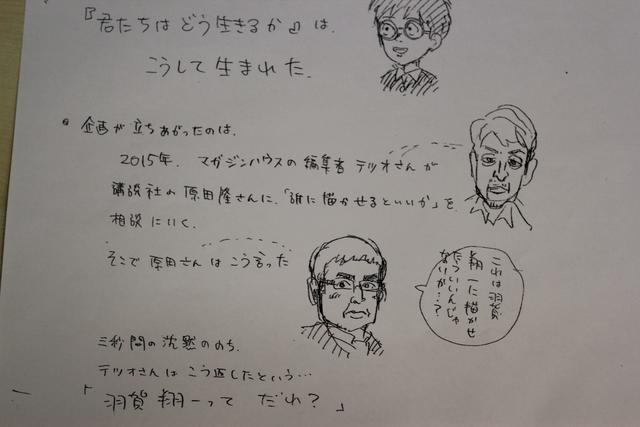 『君たちは どう生きるか』は、
こうして生まれた。
企画が立ちあがったのは、
2015年、マガジンハウスの編集者 テツオさんが
講談社の原田隆さんに、「誰に描かせるといいか」を
相談にいく。
そこで原田さんはこう言った
これは羽賀
翔一に描かせ
たらいいんじゃ
ないか…?
三秒間の沈黙ののち、
テツオさんはこう返したという…
「羽賀翔一って だれ?」